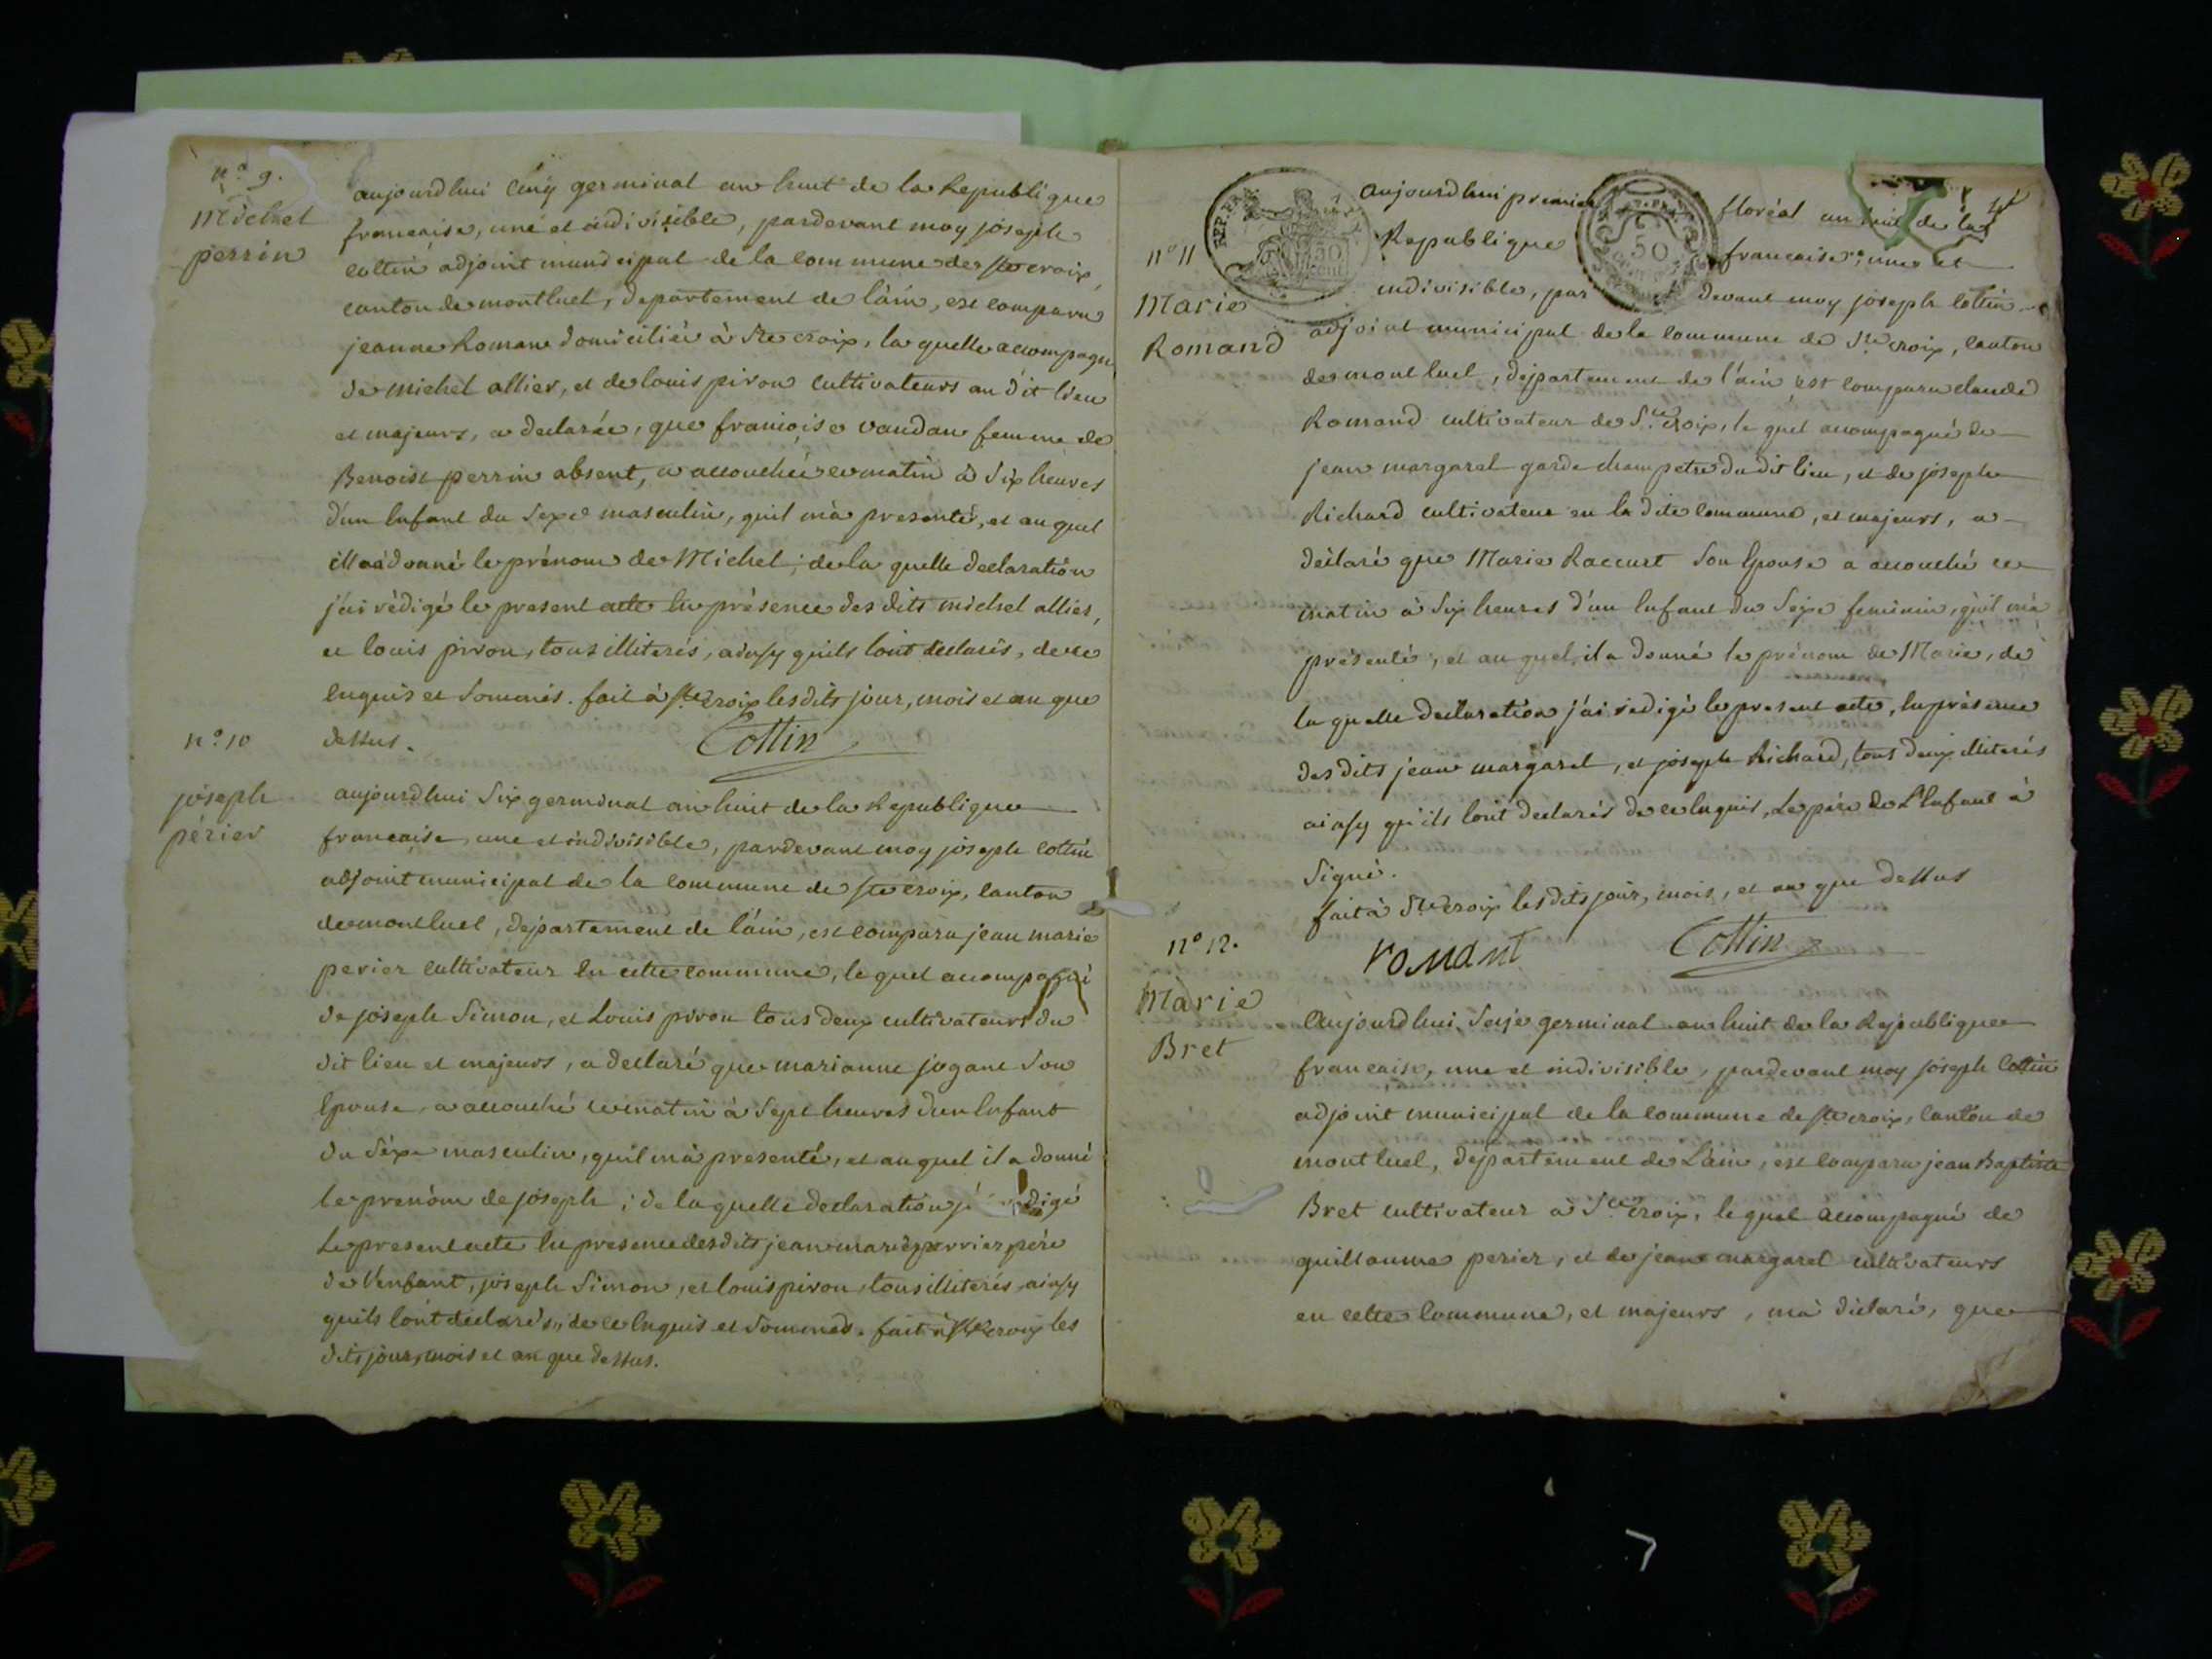 n.o 9.
Michel
perrin
aujourdhui cinq germinal an huit de la Republique
francaise, une et indivisible, pardevant moy joseph
cottin adjoint municipal de la commune de Ste croix,
canton de montluel, departement de l'ain, est comparu
jeanne Romane domiciliée à Ste croix, la quelle accompagné
de michel allier, et de louis pivon cultivateurs au dit lieu
et majeurs, a declarée, que francoise vaudan femme de
Benoist perrin absent, a accouchée ce matin à Six heures
d'un Enfant du Sexe masculin, quil m'a presenté, et au quel
illa a donné le prénom de Michel; de la quelle declaration
j'ai rédigé le present acte En présence des dits michel allier,
et louis pivon, tous illiterés, ainsy quils l'ont declarés, de ce
Enquis et Sommés. fait à Ste croix les dits jour, mois et an que
dessus. Cottin
n.o 10
joseph
périer
aujourdhui Six germinal an huit de la Republique
francaise, une et indivisible, pardevant moy joseph cottin
adjoint municipal de la commune de Ste croix, canton
de montluel, departement de l'ain, est comparu jean marie
perier cultivateur En cette commune, le quel accompagné
de joseph Simon, et Louis pivon tous deux cultivateurs du
dit lieu et majeurs, a declaré que marianne jogant Son
Epouse, a accouché ce matin à Sept heures d'un Enfant
du Séxe masculin, quil m'a presenté, et au quel il a donné
le prenóm de joseph; de la quelle declaration j' digé
Le present acte En presence des dits jean marie perrier, père
de l'enfant, joseph Simon, et louis pivon, tous illiterés, ainsy
quils l'ont declarés, de ce Enquis et Sommés. fait à Ste croix les
dits jour, mois et an que dessus.
REP. FRA.
50
50
aujourdhui premier floréal an huit de la
n.o 11 Republique francaise, une et
Marie
Romand
indivisible, par devant moy joseph Cottin
adjoint municipal de la commune de Ste croix, canton
de montluel, departement de l'ain est comparu claude
Romand cultivateur de Ste croix, le quel accompagné de
jean margaret garde champetre du dit lieu, et de joseph
Richard cultivateur en la dite commune, et majeurs, a
déclaré que Marie Raccurt Son Epouse a accouché ce
matin à Six heures d'un Enfant du Sexe feminin, qu'il m'a
présenté, et au quel, il a donné le prénom de Marie, de
la quelle declaration j'ai rédigé le present acte, En présence
des dits jean margaret, et joseph Richard, tous deux illiterés
ainsy qu'ils l'ont declarés de ce Enquis, Le père de L'Enfant à
Signé.
fait à Ste croix les dits jour, mois, et an que dessus
romant Cottin
n.o 12.
Marie
Bret
Aujourdhui Seize germinal an huit de la Republique
francaise, une et indivisible, pardevant moy joseph Cottin
adjoint municipal de la commune de Ste croix, canton de
montluel, departement de L'ain, est comparu jean Baptiste
Bret cultivateur à Ste croix, le quel accompagné de
guillaume perier, et de jean margaret cultivateurs
en cette Commune, et majeurs, m'a déclaré, que